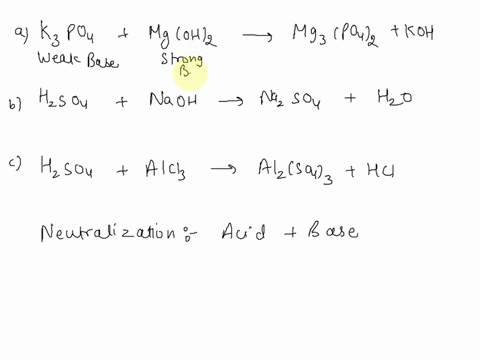 a) K3PO4 + Mg(OH)2 → Mg3(PO4)2 + KOH
Weak Base Strong
B.
b) H2SO4 + NaOH → Na2SO4 + H2O
c) H2SO4 + AlCl3 → Al2(SO4)3 + HCl
Neutralization :- Acid + Base